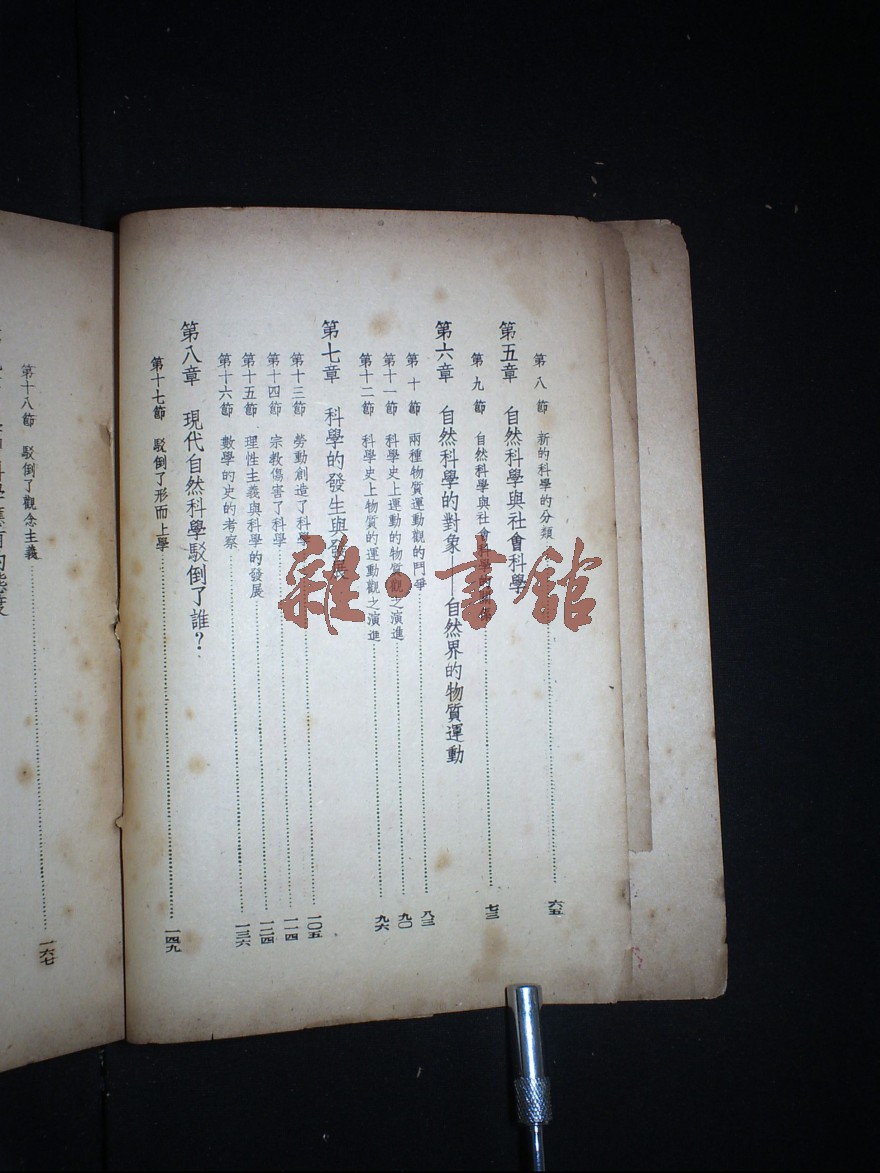 第八節　新的科學的分類……六五
第五章　自然科學與社會科學
第九節　自然科學與社會科學的……七三
第六章　自然科學的對象——自然界的物質運動
第十節　兩種物質運動觀的鬥爭……八三
第十一節　科學史上運動的物質觀之演進……九〇
第十二節　科學史上物質的運動觀之演進……九六
第七章　科學的發生與發展
第十三節　勞動創造了科學……一〇五
第十四節　宗教傷害了科學……一一四
第十五節　理性主義與科學的發展……一二四
第十六節　數學的史的考察……一三六
第八章　現代自然科學駁倒了誰？
第十七節　駁倒了形而上學……一四九
第十八節　駁倒了觀念主義……一六七
雜·書館